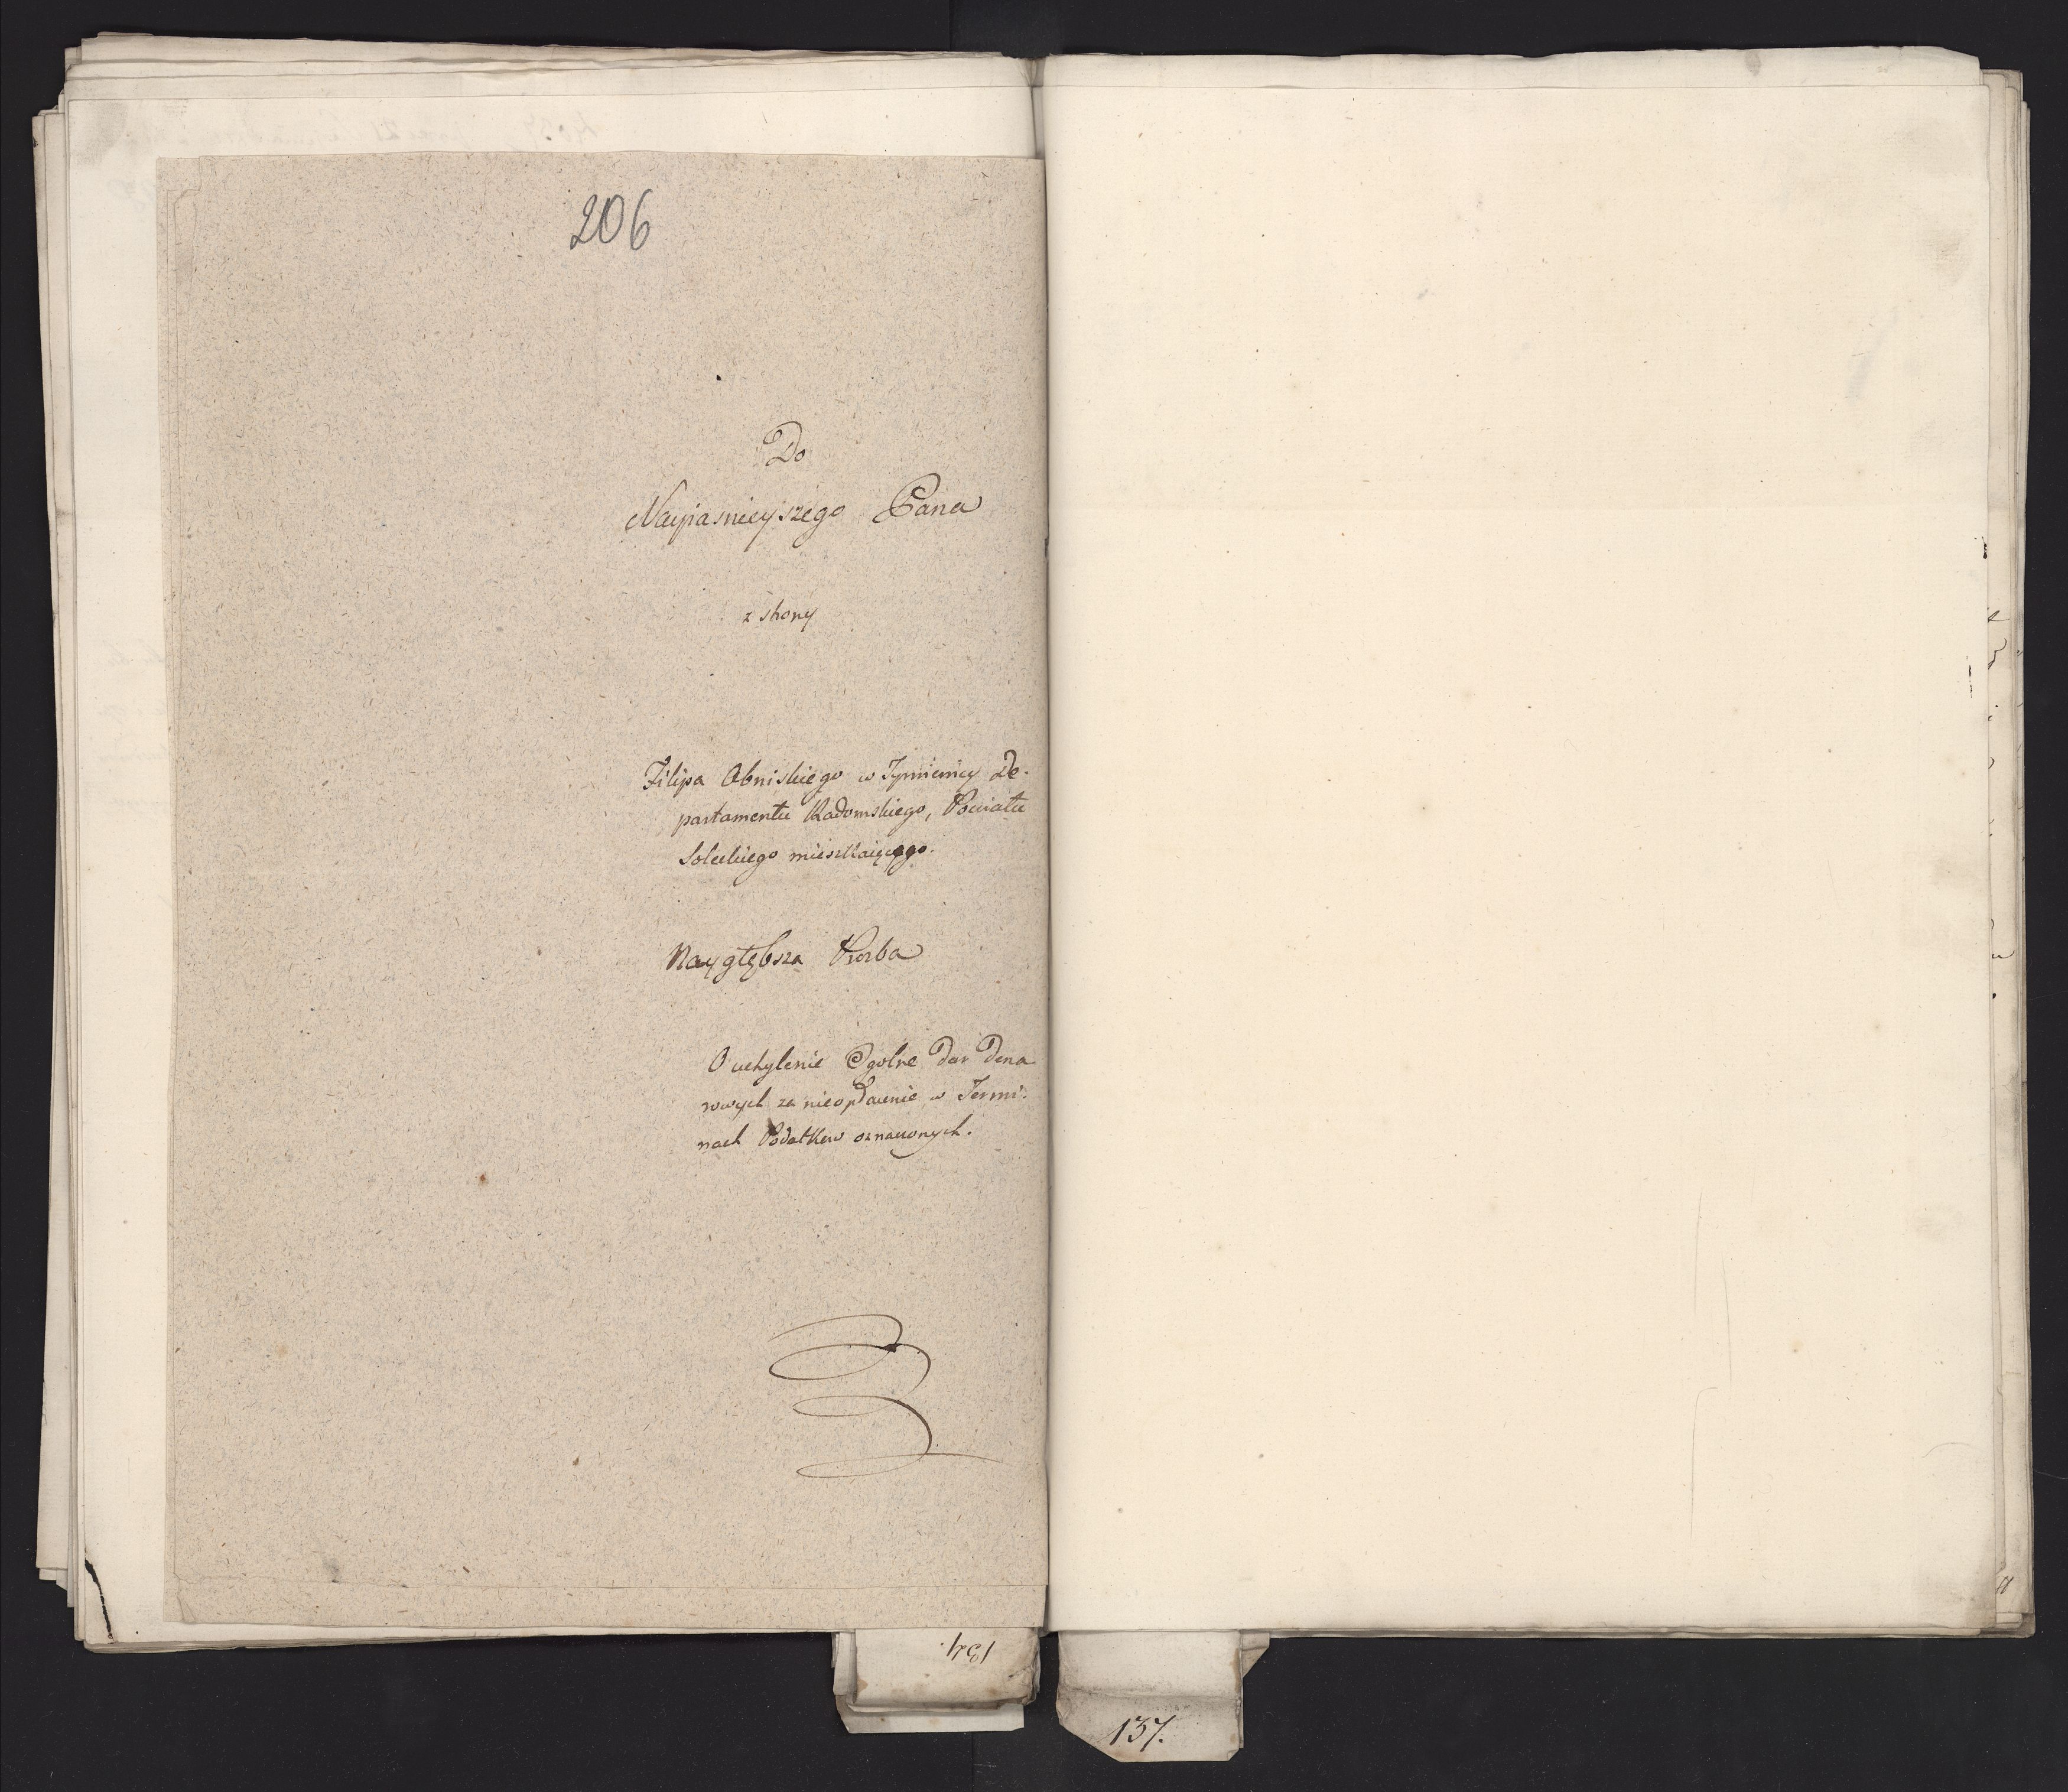 206
Do
Nayiasnieyszego Pana
z strony
Filipa Obniskiego w Tymienicy De-
partamentu Radomskiego, Powiatu
Soleckiego mieszkaiącego.
Naygłębsza Prozba
O uchylenie
za nieopłacenie w Termi-
nach Podatkow oznaczonych.
134.
137.